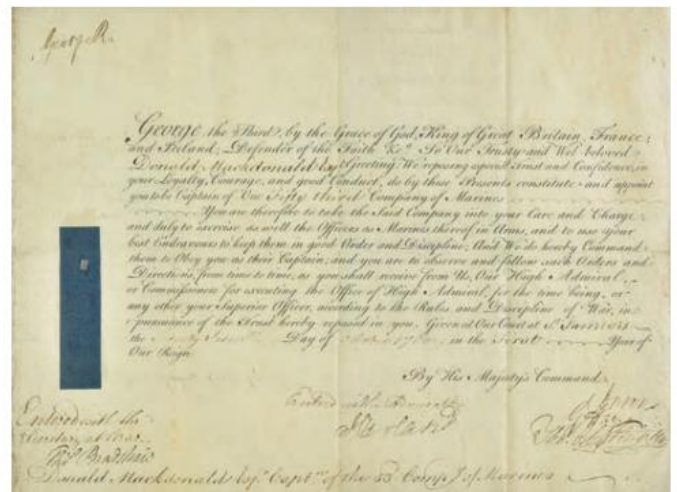 George R
George the Third, by the Grace of God, King of Great Britain, France,
and Ireland, Defender of the Faith &c. To Our Trusty and Wel beloved
Donald Mackdonald Esqr Greeting. We reposing especial Trust and Confidence in
your Loyalty, Courage, and good Conduct, do by these Presents constitute and appoint
you to be Captain of Our Fifty third Company of Marines
You are therefore to take the said Company into your Care and Charge
and duly to Exercise as well the Officers as Marines thereof in Arms, and to use your
best Endeavours to keep them in good Order and Discipline, And We do hereby Command
them to Obey you as their Captain, and you are to observe and follow such Orders and
Directions, from time to time, as you shall receive from Us, Our High Admiral
or Commissioners for executing the Office of High Admiral, for the time being, or
any other your Superior Officer, according to the Rules and Discipline of War, in
pursuance of the Trust hereby reposed in you. Given at Our Court at St James's
the Day of in the First Year of
Our Reign.
By His Majesty's Command
Entred with the
Entered with the
Secretary at War
Thos Bradshaw
Donald Mackdonald Esqr Captn of the 53 Compy of Marines